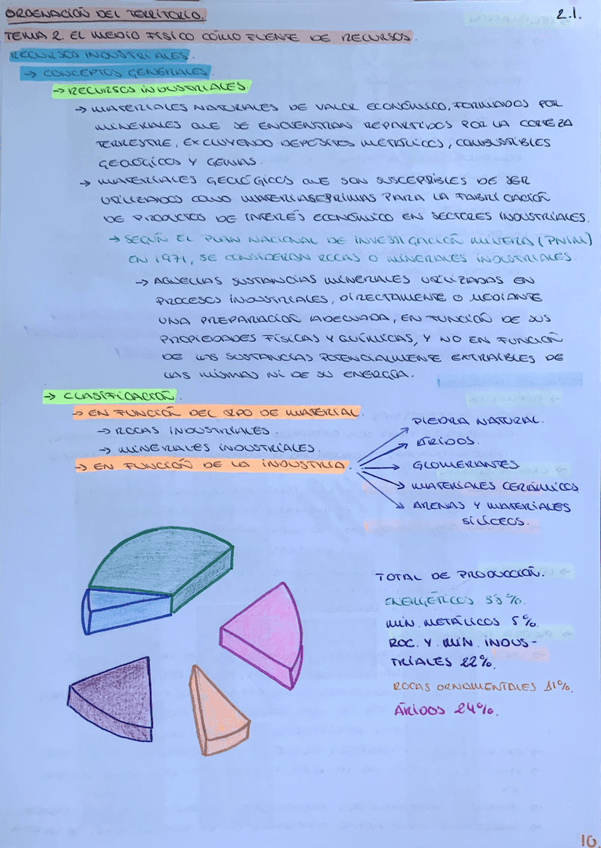 ORDENACIÓN DEL TERRITORIO.
2.1.
TEMA 2. EL MEDIO FÍSICO CÓMO FUENTE DE RECURSOS.
RECURSOS INDUSTRIALES.
→ CONCEPTOS GENERALES.
→ RECURSOS INDUSTRIALES
→ MATERIALES NATURALES DE VALOR ECONÓMICO, FORMADOS POR
MINERALES QUE SE ENCUENTRAN REPARTIDOS POR LA CORTEZA
TERRESTRE, EXCLUYENDO DEPÓSITOS METÁLICOS, COMBUSTIBLES
GEOLÓGICOS Y GEMAS.
→ MATERIALES GEOLÓGICOS QUE SON SUSCEPTIBLES DE SER
UTILIZADOS COMO MATERIAS PRIMAS PARA LA FABRICACIÓN
DE PRODUCTOS DE INTERÉS ECONÓMICO EN SECTORES INDUSTRIALES.
→ SEGÚN EL PLAN NACIONAL DE INVESTIGACIÓN MINERA (PNIM)
EN 1971, SE CONSIDERAN ROCAS O MINERALES INDUSTRIALES.
→ AQUELLAS SUSTANCIAS MINERALES UTILIZADAS EN
PROCESOS INDUSTRIALES, DIRECTAMENTE O MEDIANTE
UNA PREPARACIÓN ADECUADA, EN FUNCIÓN DE SUS
PROPIEDADES FÍSICAS Y QUÍMICAS, Y NO EN FUNCIÓN
DE LAS SUSTANCIAS POTENCIALMENTE EXTRAIBLES DE
LAS MISMAS NI DE SU ENERGÍA.
→ CLASIFICACIÓN.
→ EN FUNCIÓN DEL TIPO DE MATERIAL.
→ ROCAS INDUSTRIALES.
→ MINERIALES INDUSTRIALES.
→ EN FUNCIÓN DE LA INDUSTRIA.
PIEDRA NATURAL.
ÁRIDOS.
GLOMERANTES
MATERIALES CERÁMICOS
ARENAS Y MATERIALES
SILÍCEOS.
TOTAL DE PRODUCCIÓN.
ENERGÉTICOS
MIN. METÁLICOS 5%.
ROC. Y MIN. INDUS-
TRIALES 22%.
ROCAS ORNAMENTALES 11%.
ÁRIDOS 24%.
10.